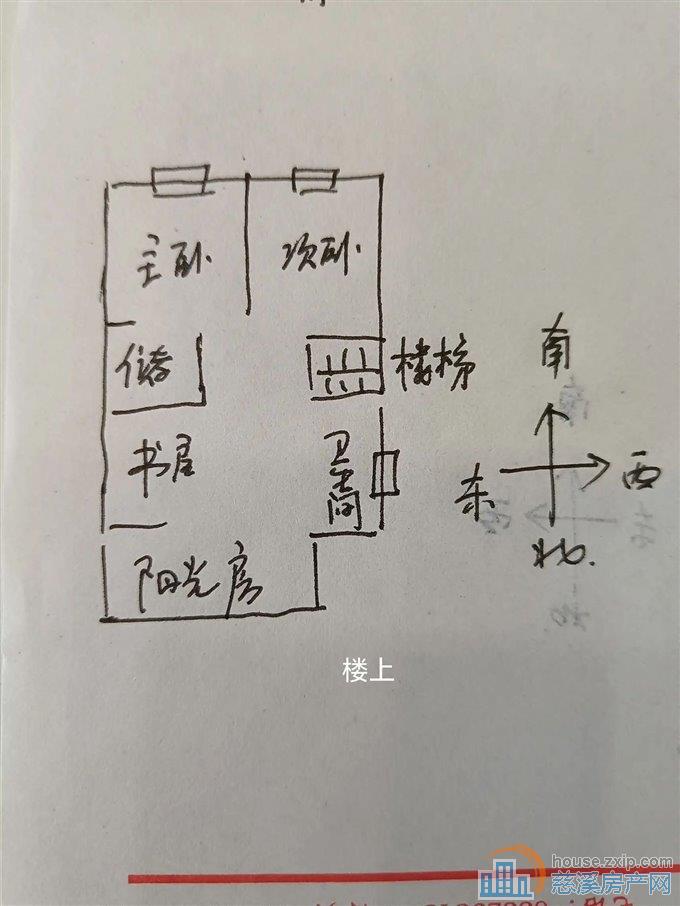 主卧
次卧
储存
楼梯
南
书屋
卫生间
东
西
北.
阳光房
楼上
house.zxip.com
慈溪房产网